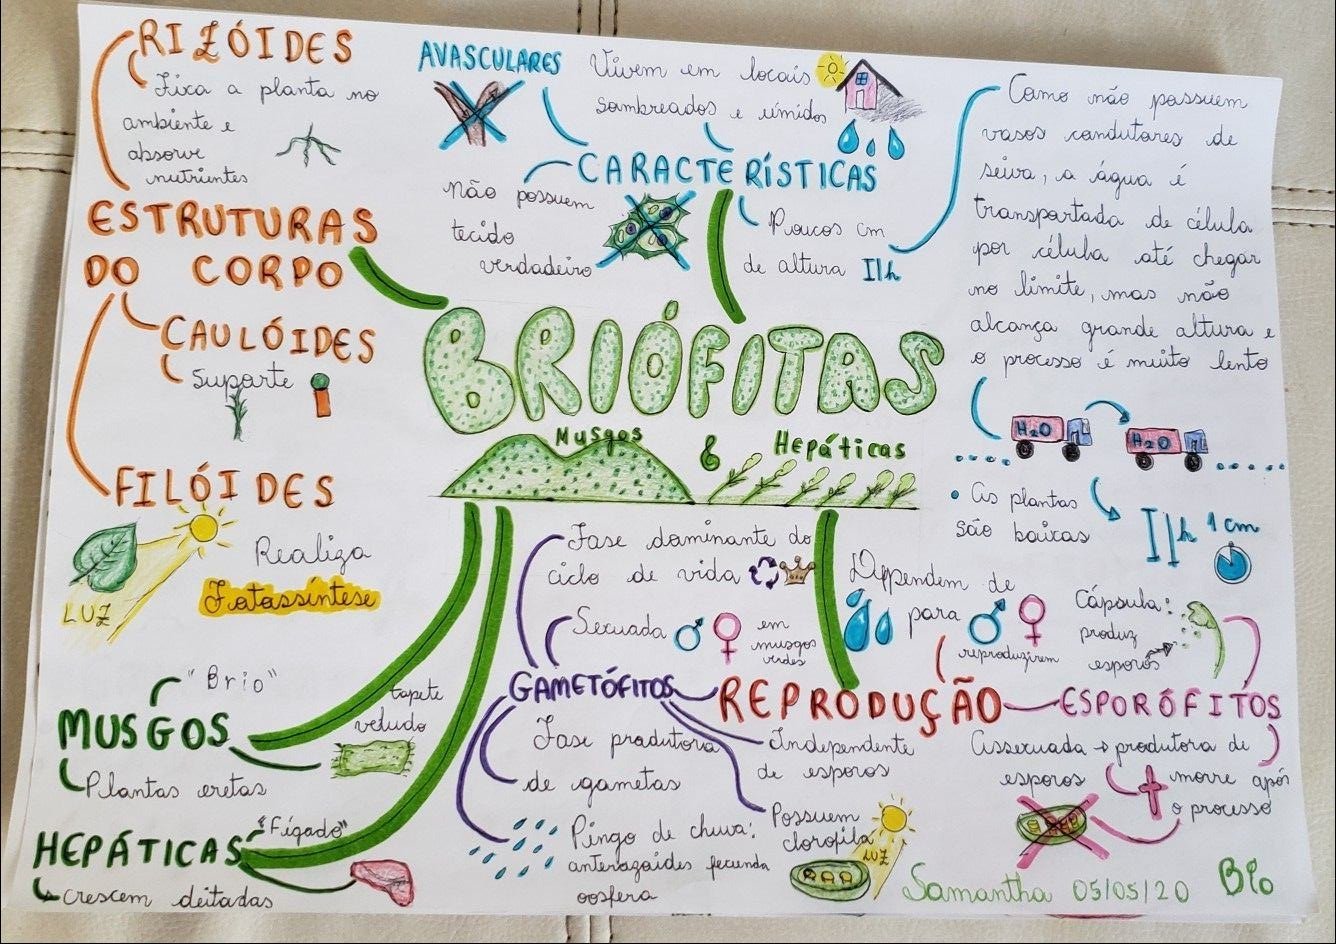 RIZÓIDES
Fixa a planta no
ambiente e
absorve
nutrientes
ESTRUTURAS
DO CORPO
CAULÓIDES
Suporte
FILÓIDES
LUZ
Realiza
Fotossíntese
AVASCULARES
Vivem em locais
sombreados e úmidos
CARACTERÍSTICAS
Não possuem
tecido
verdadeiro
Poucos cm
de altura
Como não possuem
vasos condutores de
seiva, a água é
transportada de célula
por célula até chegar
no limite, mas não
alcança grande altura e
o processo é muito lento
H2O
H2O
• As plantas
são baixas
1 cm
BRIÓFITAS
Musgos & Hepáticas
MUSGOS
"Brio"
tapete
veludo
Plantas eretas
HEPÁTICAS
"Fígado"
crescem deitadas
Fase dominante do
ciclo de vida
Sexuada ♂ ♀ em
musgos
verdes
GAMETÓFITOS
Fase produtora
de gametas
Pingo de chuva:
anterozoides fecunda
oosfera
Independente
de esporos
Possuem
clorofila
LUZ
REPRODUÇÃO
Dependem de
para ♂ ♀
reproduzirem
ESPORÓFITOS
Cápsula:
produz
esporos
Assexuada → produtora de
esporos
morre após
o processo
Samantha 05/05/20 Bio